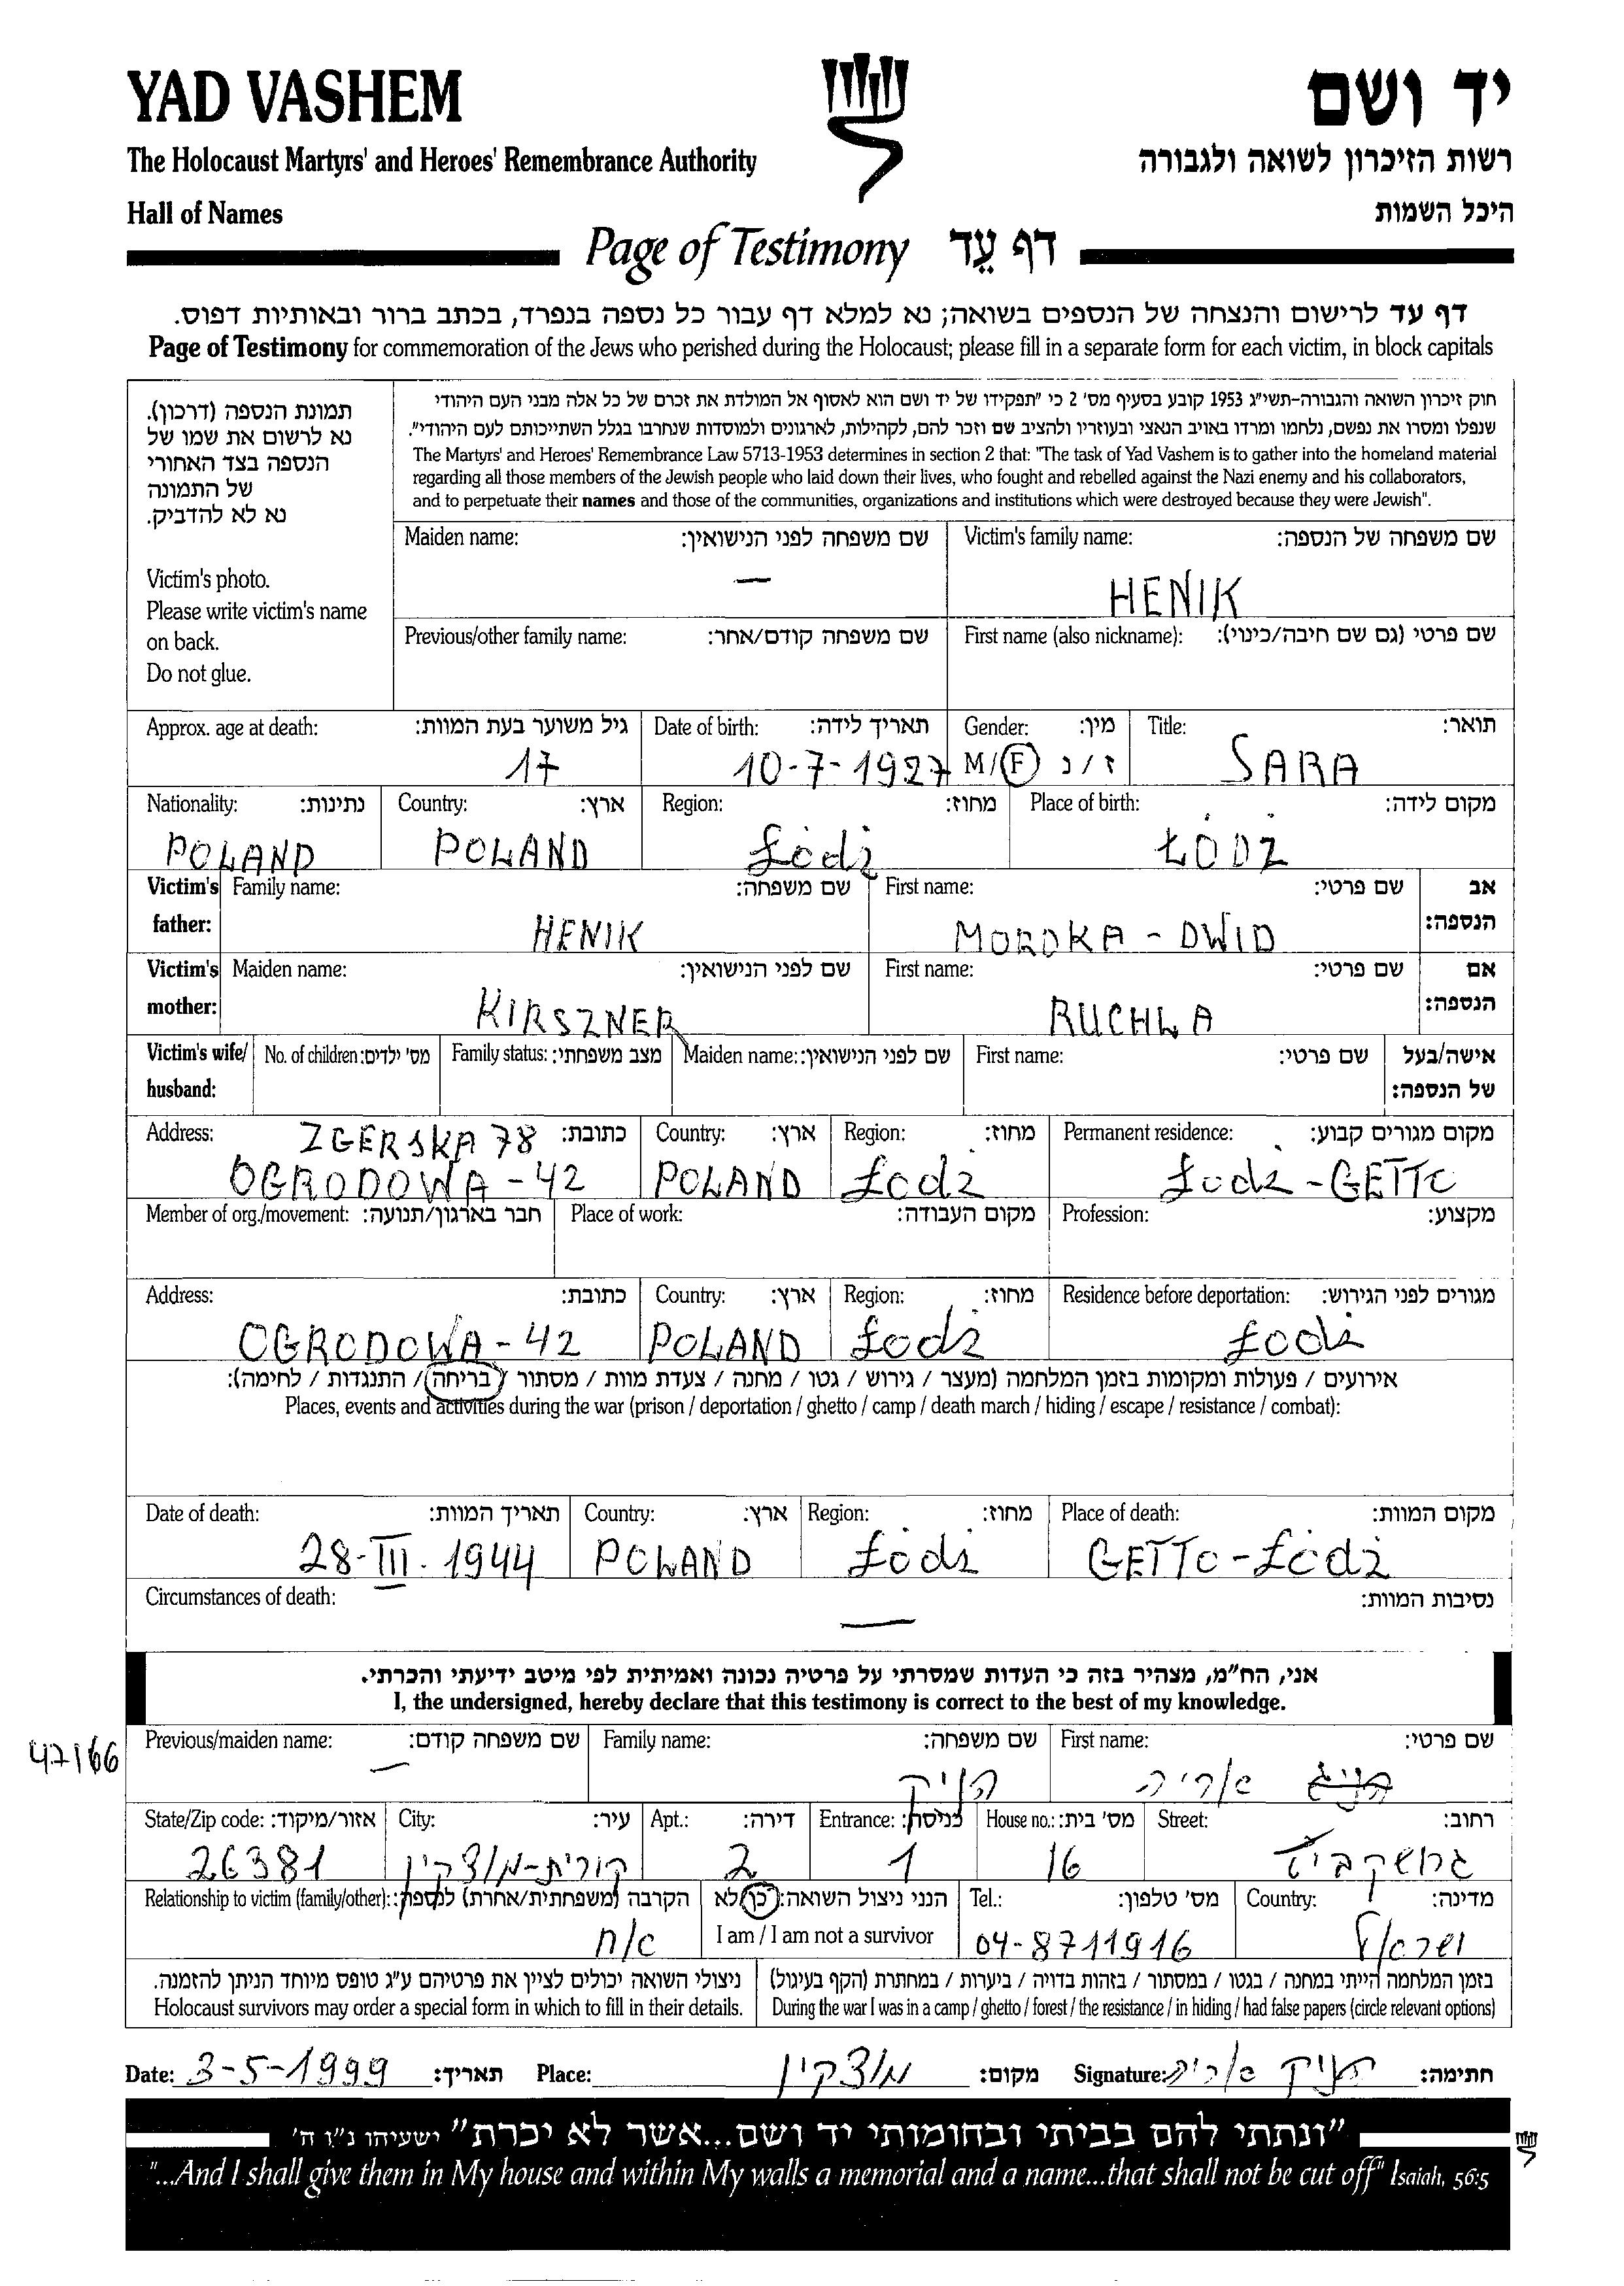 YAD VASHEM
יד ושם
The Holocaust Martyrs' and Heroes' Remembrance Authority
רשות הזיכרון לשואה ולגבורה
Hall of Names
היכל השמות
Page of Testimony דף עֵד
דף עד לרישום והנצחה של הנספים בשואה; נא למלא דף עבור כל נספה בנפרד, בכתב ברור ובאותיות דפוס.
Page of Testimony for commemoration of the Jews who perished during the Holocaust; please fill in a separate form for each victim, in block capitals
תמונת הנספה (דרכון).
נא לרשום את שמו של
הנספה בצד האחורי
של התמונה
נא לא להדביק.
Victim's photo.
Please write victim's name
on back.
Do not glue.
חוק זיכרון השואה והגבורה-תשי"ג 1953 קובע בסעיף מס' 2 כי "תפקידו של יד ושם הוא לאסוף אל המולדת את זכרם של כל אלה מבני העם היהודי
שנפלו ומסרו את נפשם, נלחמו ומרדו באויב הנאצי ובעוזריו ולהציב שם וזכר להם, לקהילות, לארגונים ולמוסדות שנחרבו בגלל השתייכותם לעם היהודי".
The Martyrs' and Heroes' Remembrance Law 5713-1953 determines in section 2 that: "The task of Yad Vashem is to gather into the homeland material
regarding all those members of the Jewish people who laid down their lives, who fought and rebelled against the Nazi enemy and his collaborators,
and to perpetuate their names and those of the communities, organizations and institutions which were destroyed because they were Jewish".
Maiden name: שם משפחה לפני הנישואין: Victim's family name: שם משפחה של הנספה:
— HENIK
Previous/other family name: שם משפחה קודם/אחר: First name (also nickname): שם פרטי (גם שם חיבה/כינוי):
Approx. age at death: גיל משוער בעת המוות: Date of birth: תאריך לידה: Gender: מין: Title: תואר:
17 10-7-1927 M/F ז/נ SARA
Nationality: נתינות: Country: ארץ: Region: מחוז: Place of birth: מקום לידה:
POLAND POLAND Łódż ŁÓDŻ
Victim's father: Family name: שם משפחה: First name: שם פרטי: אב הנספה:
HENIK MORDKA - DWID
Victim's mother: Maiden name: שם לפני הנישואין: First name: שם פרטי: אם הנספה:
KIRSZNER RUCHLA
Victim's wife/ husband: No. of children: מס' ילדים: Family status: מצב משפחתי: Maiden name: שם לפני הנישואין: First name: שם פרטי: אישה/בעל של הנספה:
Address: ZGERSKA 78 כתובת: Country: ארץ: Region: מחוז: Permanent residence: מקום מגורים קבוע:
OGRODOWA - 42 POLAND Łodż Łodż - GETTO
Member of org./movement: חבר בארגון/תנועה: Place of work: מקום העבודה: Profession: מקצוע:
Address: כתובת: Country: ארץ: Region: מחוז: Residence before deportation: מגורים לפני הגירוש:
OGRODOWA - 42 POLAND Łodż Łodż
אירועים / פעולות ומקומות בזמן המלחמה (מעצר / גירוש / גטו / מחנה / צעדת מוות / מסתור / בריחה / התנגדות / לחימה):
Places, events and activities during the war (prison / deportation / ghetto / camp / death march / hiding / escape / resistance / combat):
Date of death: תאריך המוות: Country: ארץ: Region: מחוז: Place of death: מקום המוות:
28-III. 1944 POLAND Łódż GETTO - Łódż
Circumstances of death: נסיבות המוות:
—
אני, הח"מ, מצהיר בזה כי העדות שמסרתי על פרטיה נכונה ואמיתית לפי מיטב ידיעתי והכרתי.
I, the undersigned, hereby declare that this testimony is correct to the best of my knowledge.
47166
Previous/maiden name: שם משפחה קודם: Family name: שם משפחה: First name: שם פרטי:
— הניק אריה
State/Zip code: אזור/מיקוד: City: עיר: Apt.: דירה: Entrance: כניסה: House no.: מס' בית: Street: רחוב:
26381 קורית-מוצקין 2 1 16 גרושקביץ
Relationship to victim (family/other): הקרבה (משפחתית/אחרת) לנספה: הנני ניצול השואה: כן/לא Tel.: מס' טלפון: Country: מדינה:
אח I am / I am not a survivor 04-8711916 ישראל
ניצולי השואה יכולים לציין את פרטיהם ע"ג טופס מיוחד הניתן להזמנה. בזמן המלחמה הייתי במחנה / בגטו / במסתור / בזהות בדויה / ביערות / במחתרת (הקף בעיגול)
Holocaust survivors may order a special form in which to fill in their details. During the war I was in a camp / ghetto / forest / the resistance / in hiding / had false papers (circle relevant options)
Date: 3-5-1999 תאריך: Place: מוצקין מקום: Signature: הניק אריה חתימה:
"ונתתי להם בביתי ובחומותי יד ושם...אשר לא יכרת" ישעיהו נ"ו ה'
"...And I shall give them in My house and within My walls a memorial and a name...that shall not be cut off" Isaiah, 56:5